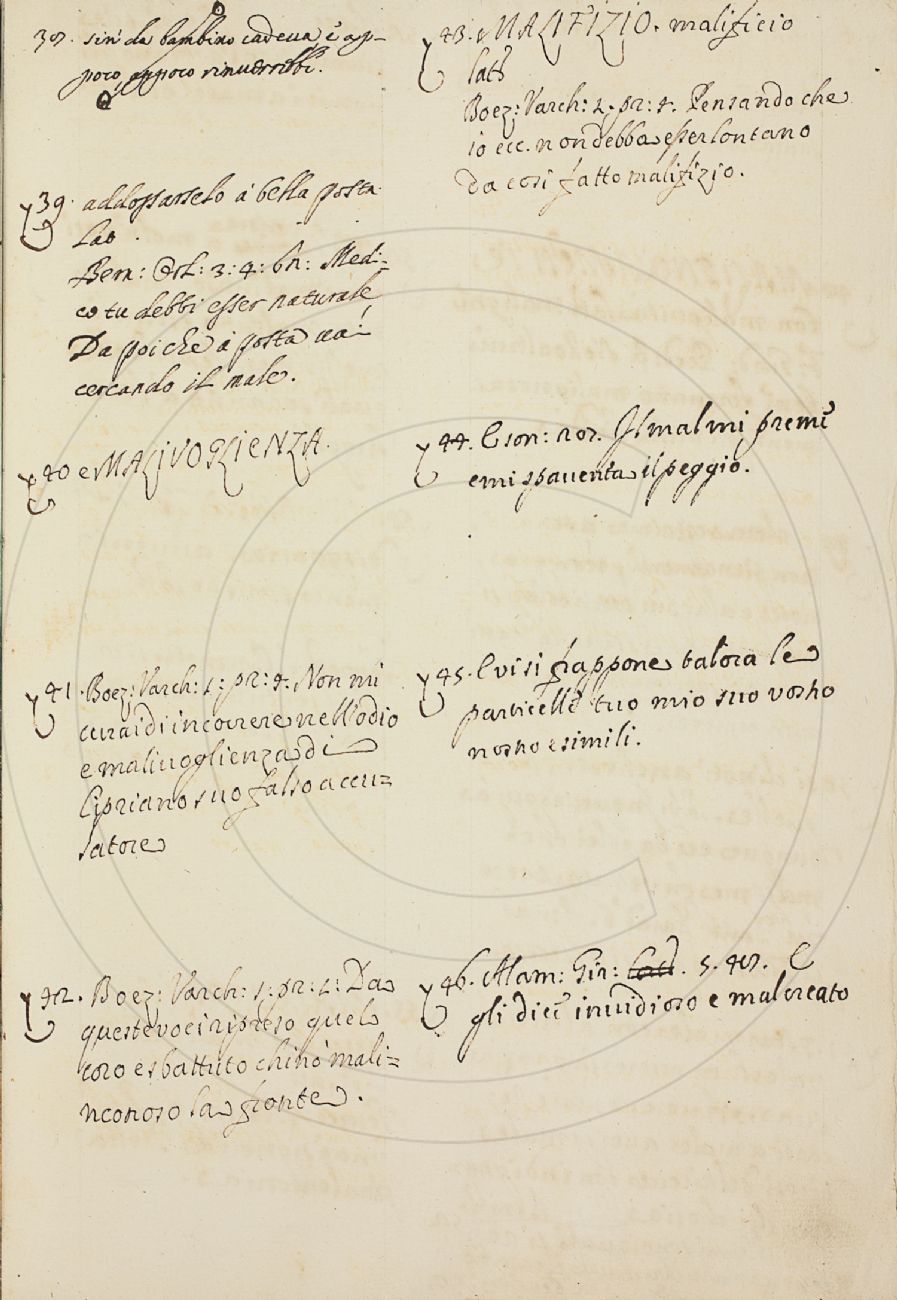 38. sin da bambino cadeva, e ap=
poco, appoco rinverrebbi.
39. addossarselo a bella posta
Lat.
Bern: Orl: 3: 4: 6n: Medi=
co tu debbi esser naturale
Da poi che a posta vai
cercando il male.
40 e MALIVOGLIENZA.
41. Boez: Varch: 1: pr: 4. Non mi
curai di incorrere nell'odio
e malivoglienza di
Cipriano suo falso accu=
satore
42. Boez: Varch: 1: pr: 1: Da
queste voci ripreso quel
coro e sbattuto chinò mali=
nconoso la fronte.
43. e MALIFIZIO. malificio
lat
Boez: Varch: 1. pr: 4. Pensando che
io ecc. non debba esser lontano
da così fatto malifizio.
44. E son: 207. Il mal mi preme
e mi spaventa il peggio.
45. E vi si frappone talora le
particelle tuo mio suo vostro
nostro e simili.
46. Alam: Gir: 5. 48. E
gli dice invidioso e malcreato